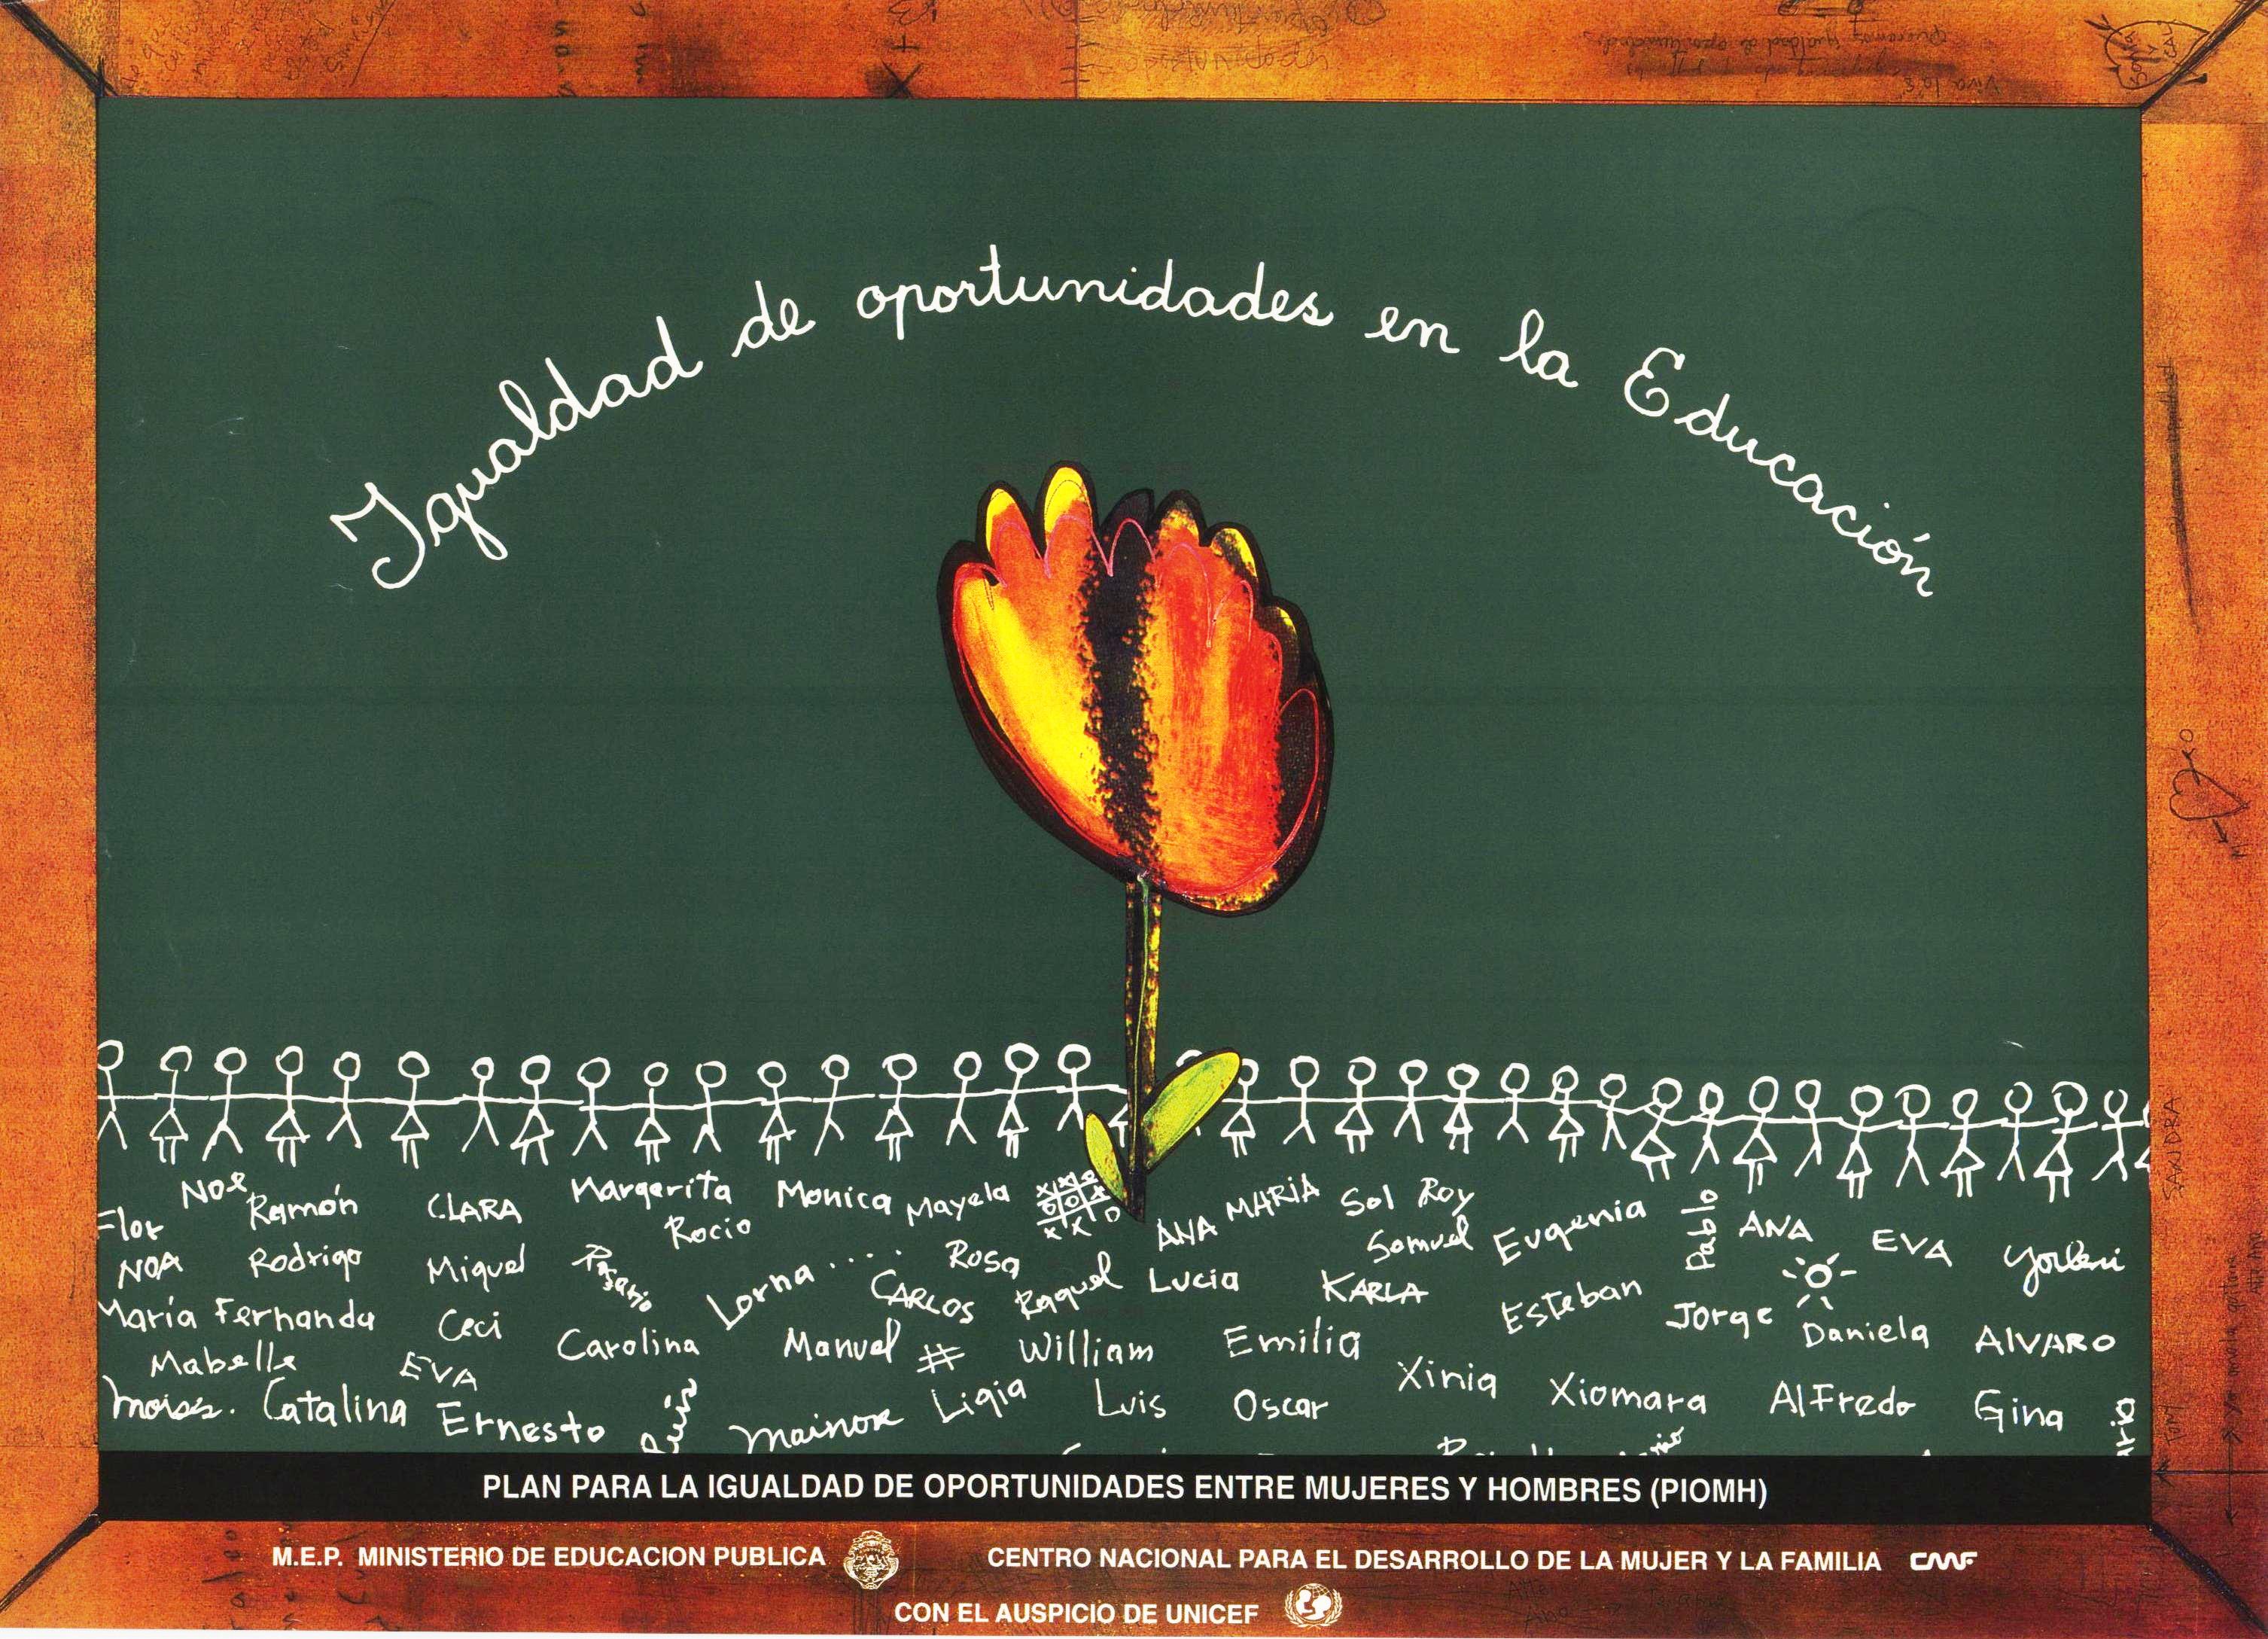 Igualdad de oportunidades en la Educación
Noe Ramón CLARA Margarita Monica Mayela ANA MARIA Sol Roy Eugenia Pablo ANA EVA Yorleni
Flor Rocio Samuel
NOA Rodrigo Miguel Rosario Lorna... CARLOS Rosa Raquel Lucia KARLA Esteban Jorge
María Fernanda Ceci Carolina Manuel # William Emilia Daniela ALVARO
Mabelle EVA Xinia Xiomara AlFredo Gina
Catalina Ernesto Mainor Ligia Luis Oscar
PLAN PARA LA IGUALDAD DE OPORTUNIDADES ENTRE MUJERES Y HOMBRES (PIOMH)
M.E.P. MINISTERIO DE EDUCACION PUBLICA
CENTRO NACIONAL PARA EL DESARROLLO DE LA MUJER Y LA FAMILIA CMF
CON EL AUSPICIO DE UNICEF
SANDRA